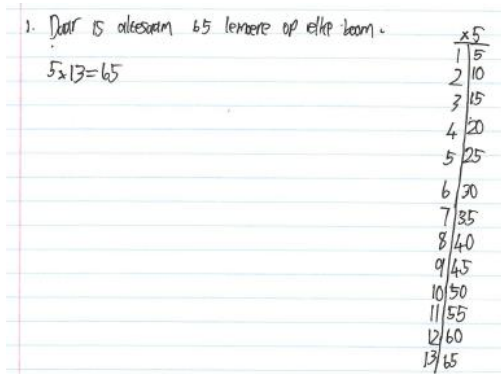 1. Daar is altesaam 65 lemoere op elke boom.
5x13=65
x5
1 | 5
2 | 10
3 | 15
4 | 20
5 | 25
6 | 30
7 | 35
8 | 40
9 | 45
10 | 50
11 | 55
12 | 60
13 | 65